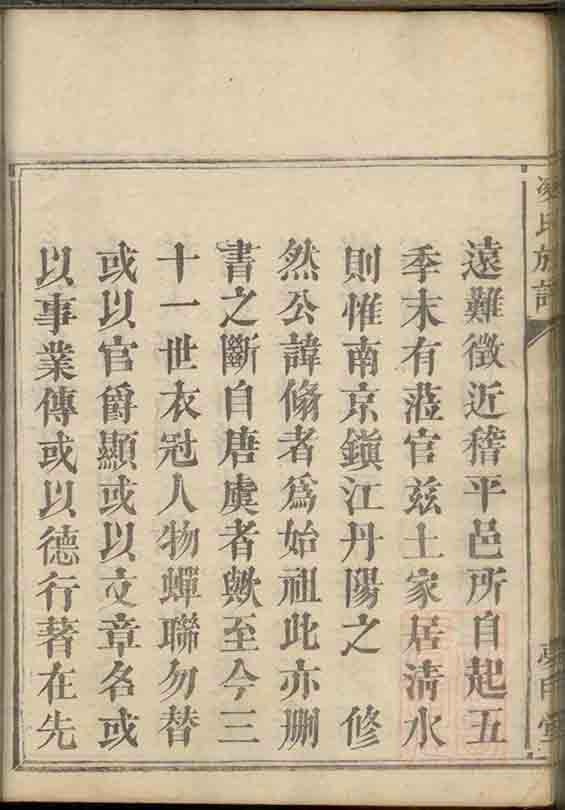 氏族譜
遠難徵近稽平邑所自起五
季末有蒞官兹土家居淸水
則惟南京鎭江丹陽之　修
然公諱脩者爲始祖此亦刪
書之斷自唐虞者歟至今三
十一世衣冠人物蟬聯勿替
或以官爵顯或以文章名或
以事業傳或以德行著在先